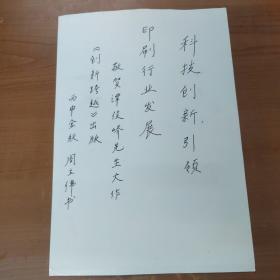 科技创新，引领
印刷行业发展
敬贺谭俊峤先生大作
《创新跨越》出版
丙申金秋 周工纬书